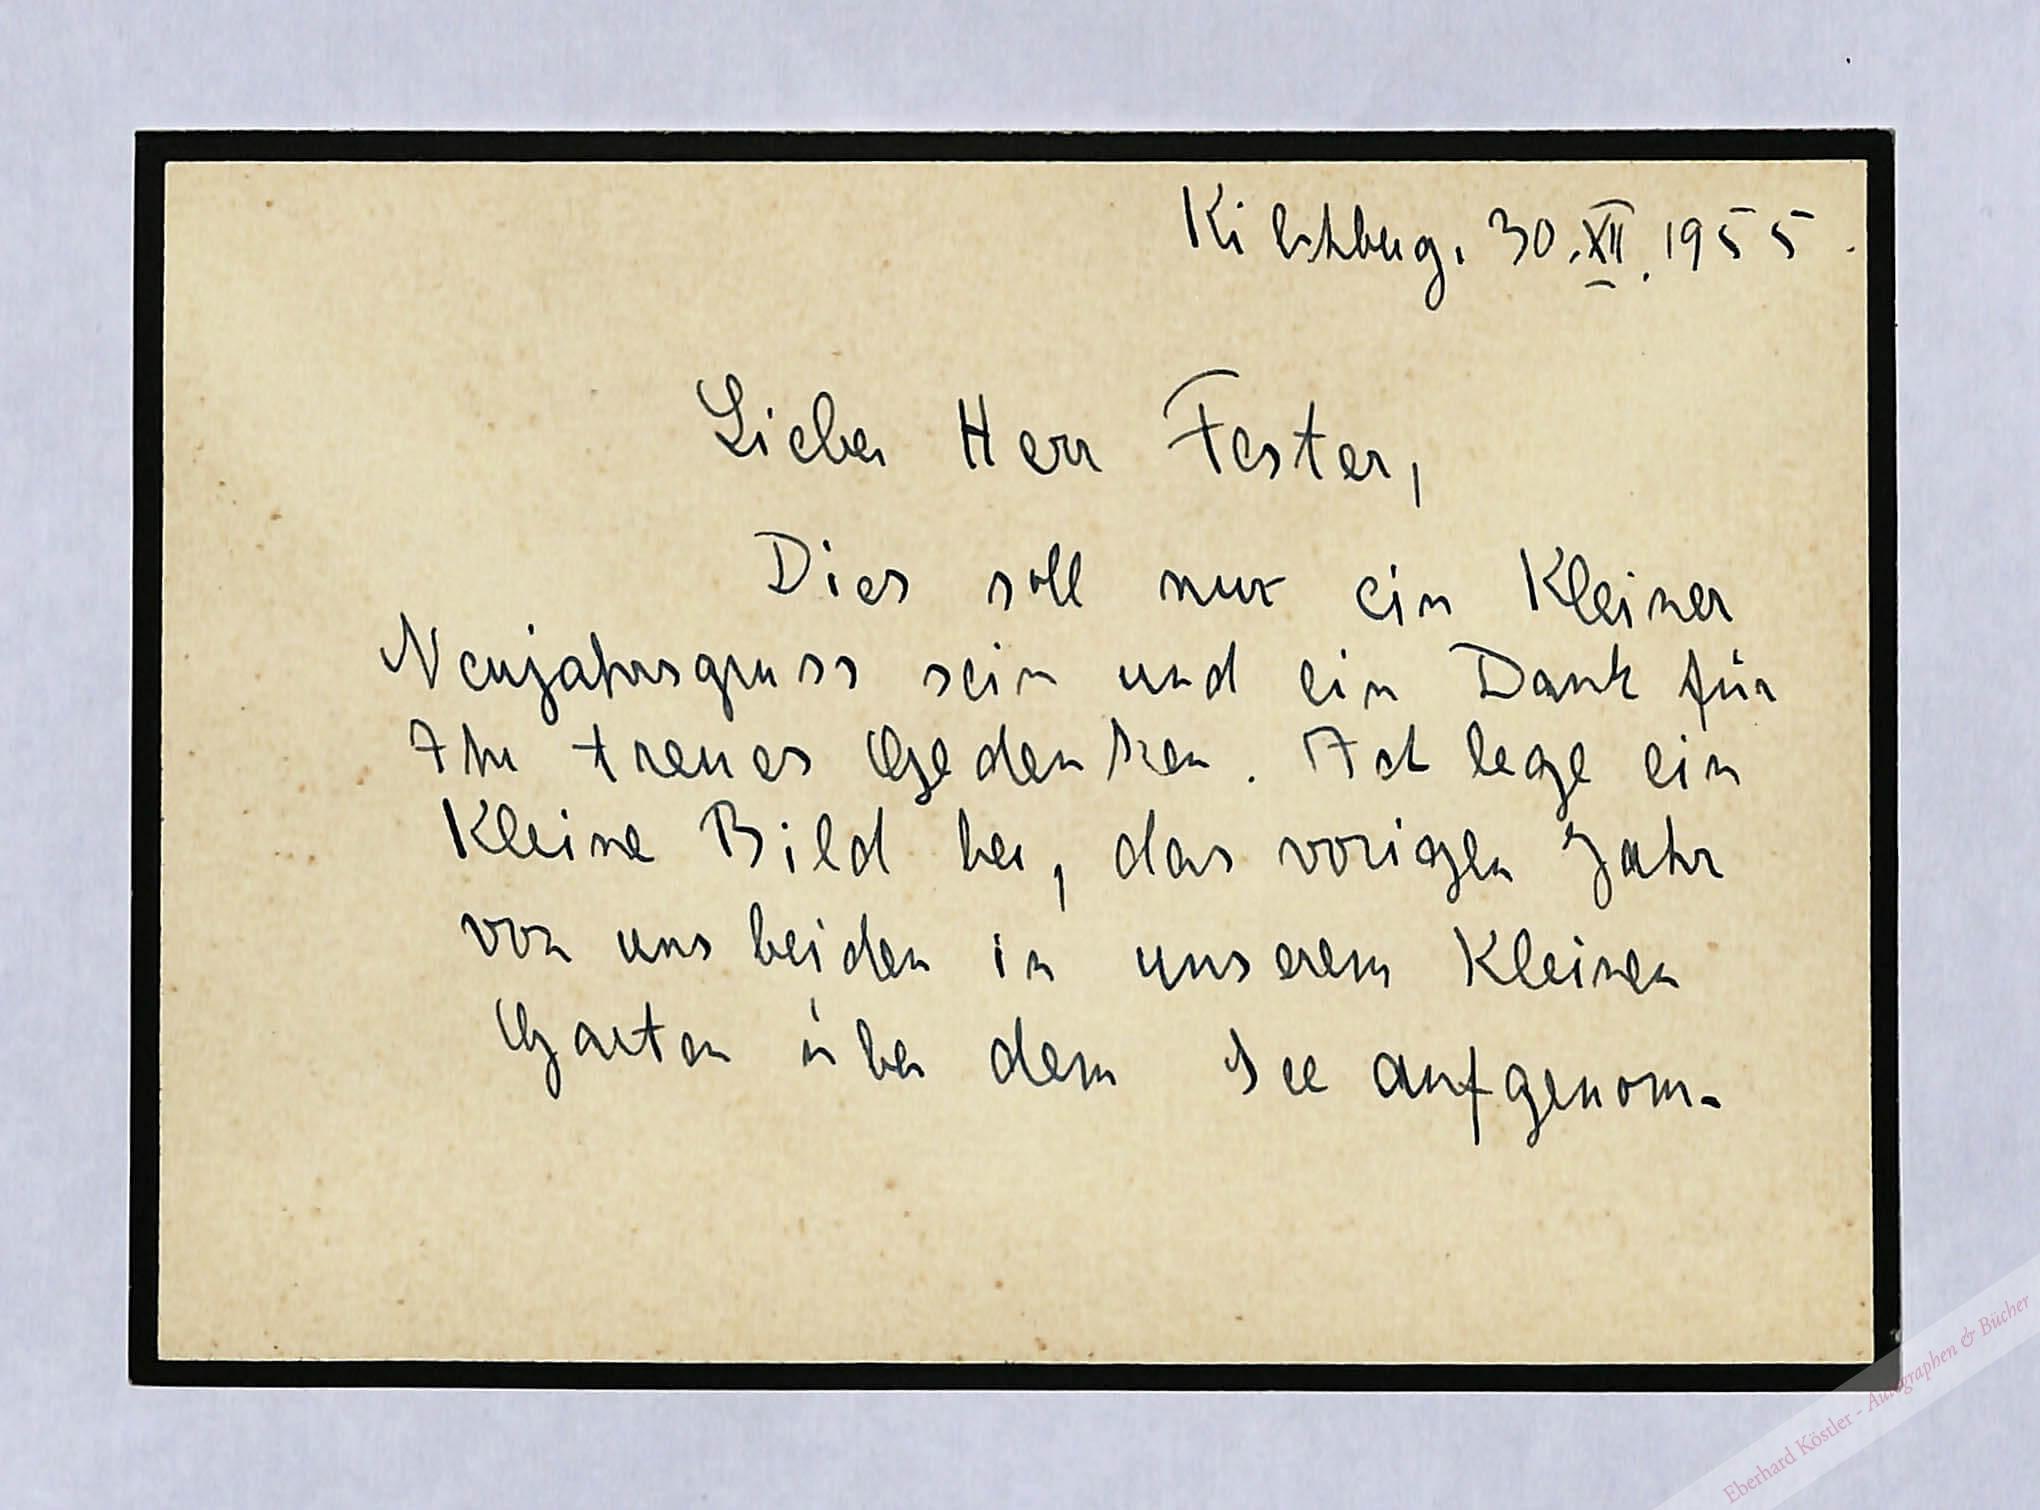 Kilchberg. 30.XII.1955.
Lieber Herr Fester,
Dies soll nur ein Kleiner
Neujahrsgruss sein und ein Dank für
Ihr treues Gedenken. Ich lege ein
Kleine Bild bei, das vorigen Jahr
von uns beiden in unserem Kleinen
Garten über dem See aufgenom-
Eberhard Köstler - Autographen & Bücher